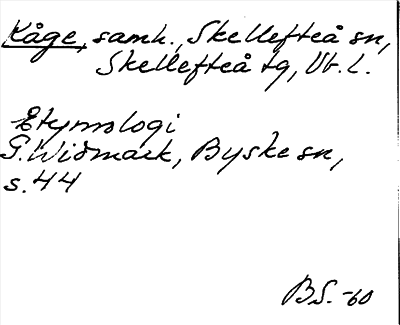 Kåge, samh., Skellefteå sn,
Skellefteå tg, Vb. L.
Etymologi
G. Widmark, Byske sn,
s. 44
B S. -60